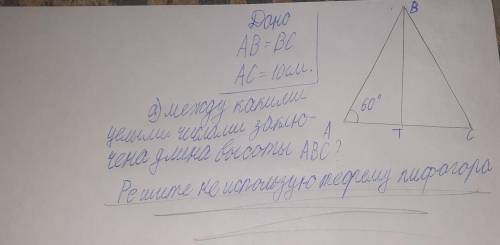 Дано
AB = BC
AC = 10см.
а) между какими
целыми числами заклю-
чена длина высоты ABC?
Решите не использую теорему пифагора
B
60°
A
T
C